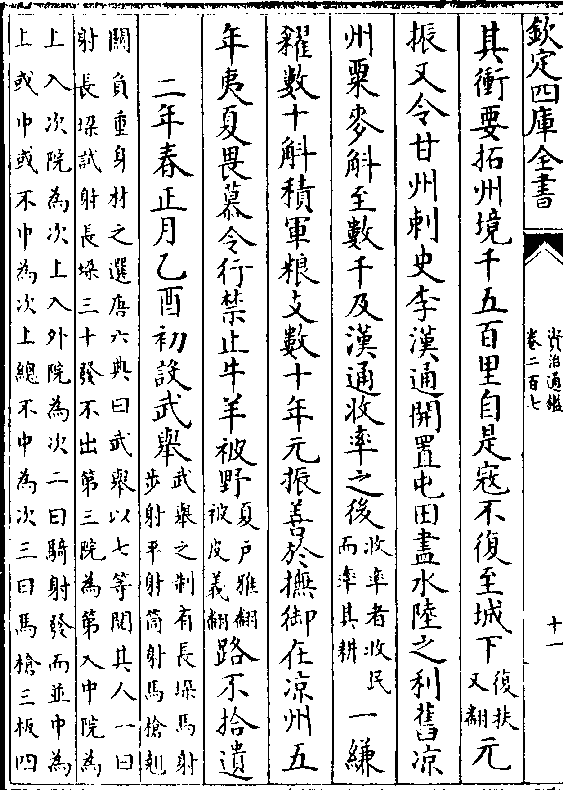 欽定四庫全書
資治通鑑
卷二百七
十一
其衝要拓州境千五百里自是寇不復至城下復扶又翻元
振又令甘州刺史李漢通開置屯田盡水陸之利舊凉
州粟麥斛至數千及漢通收率之後收率者收民而率其耕一縑
糴數十斛積軍粮支數十年元振善於撫御在凉州五
年夷夏畏慕令行禁止牛羊被野夏户雅翻被皮義翻路不拾遺
二年春正月乙酉初設武舉武舉之制有長垜馬射步射平射筒射馬槍翹
關負重身材之選唐六典曰武舉以七等閲其人一曰
射長垜試射長垜三十發不出第三院為第入中院為
上入次院為次上入外院為次二曰騎射發而並中為
上或中或不中為次上總不中為次三曰馬槍三板四